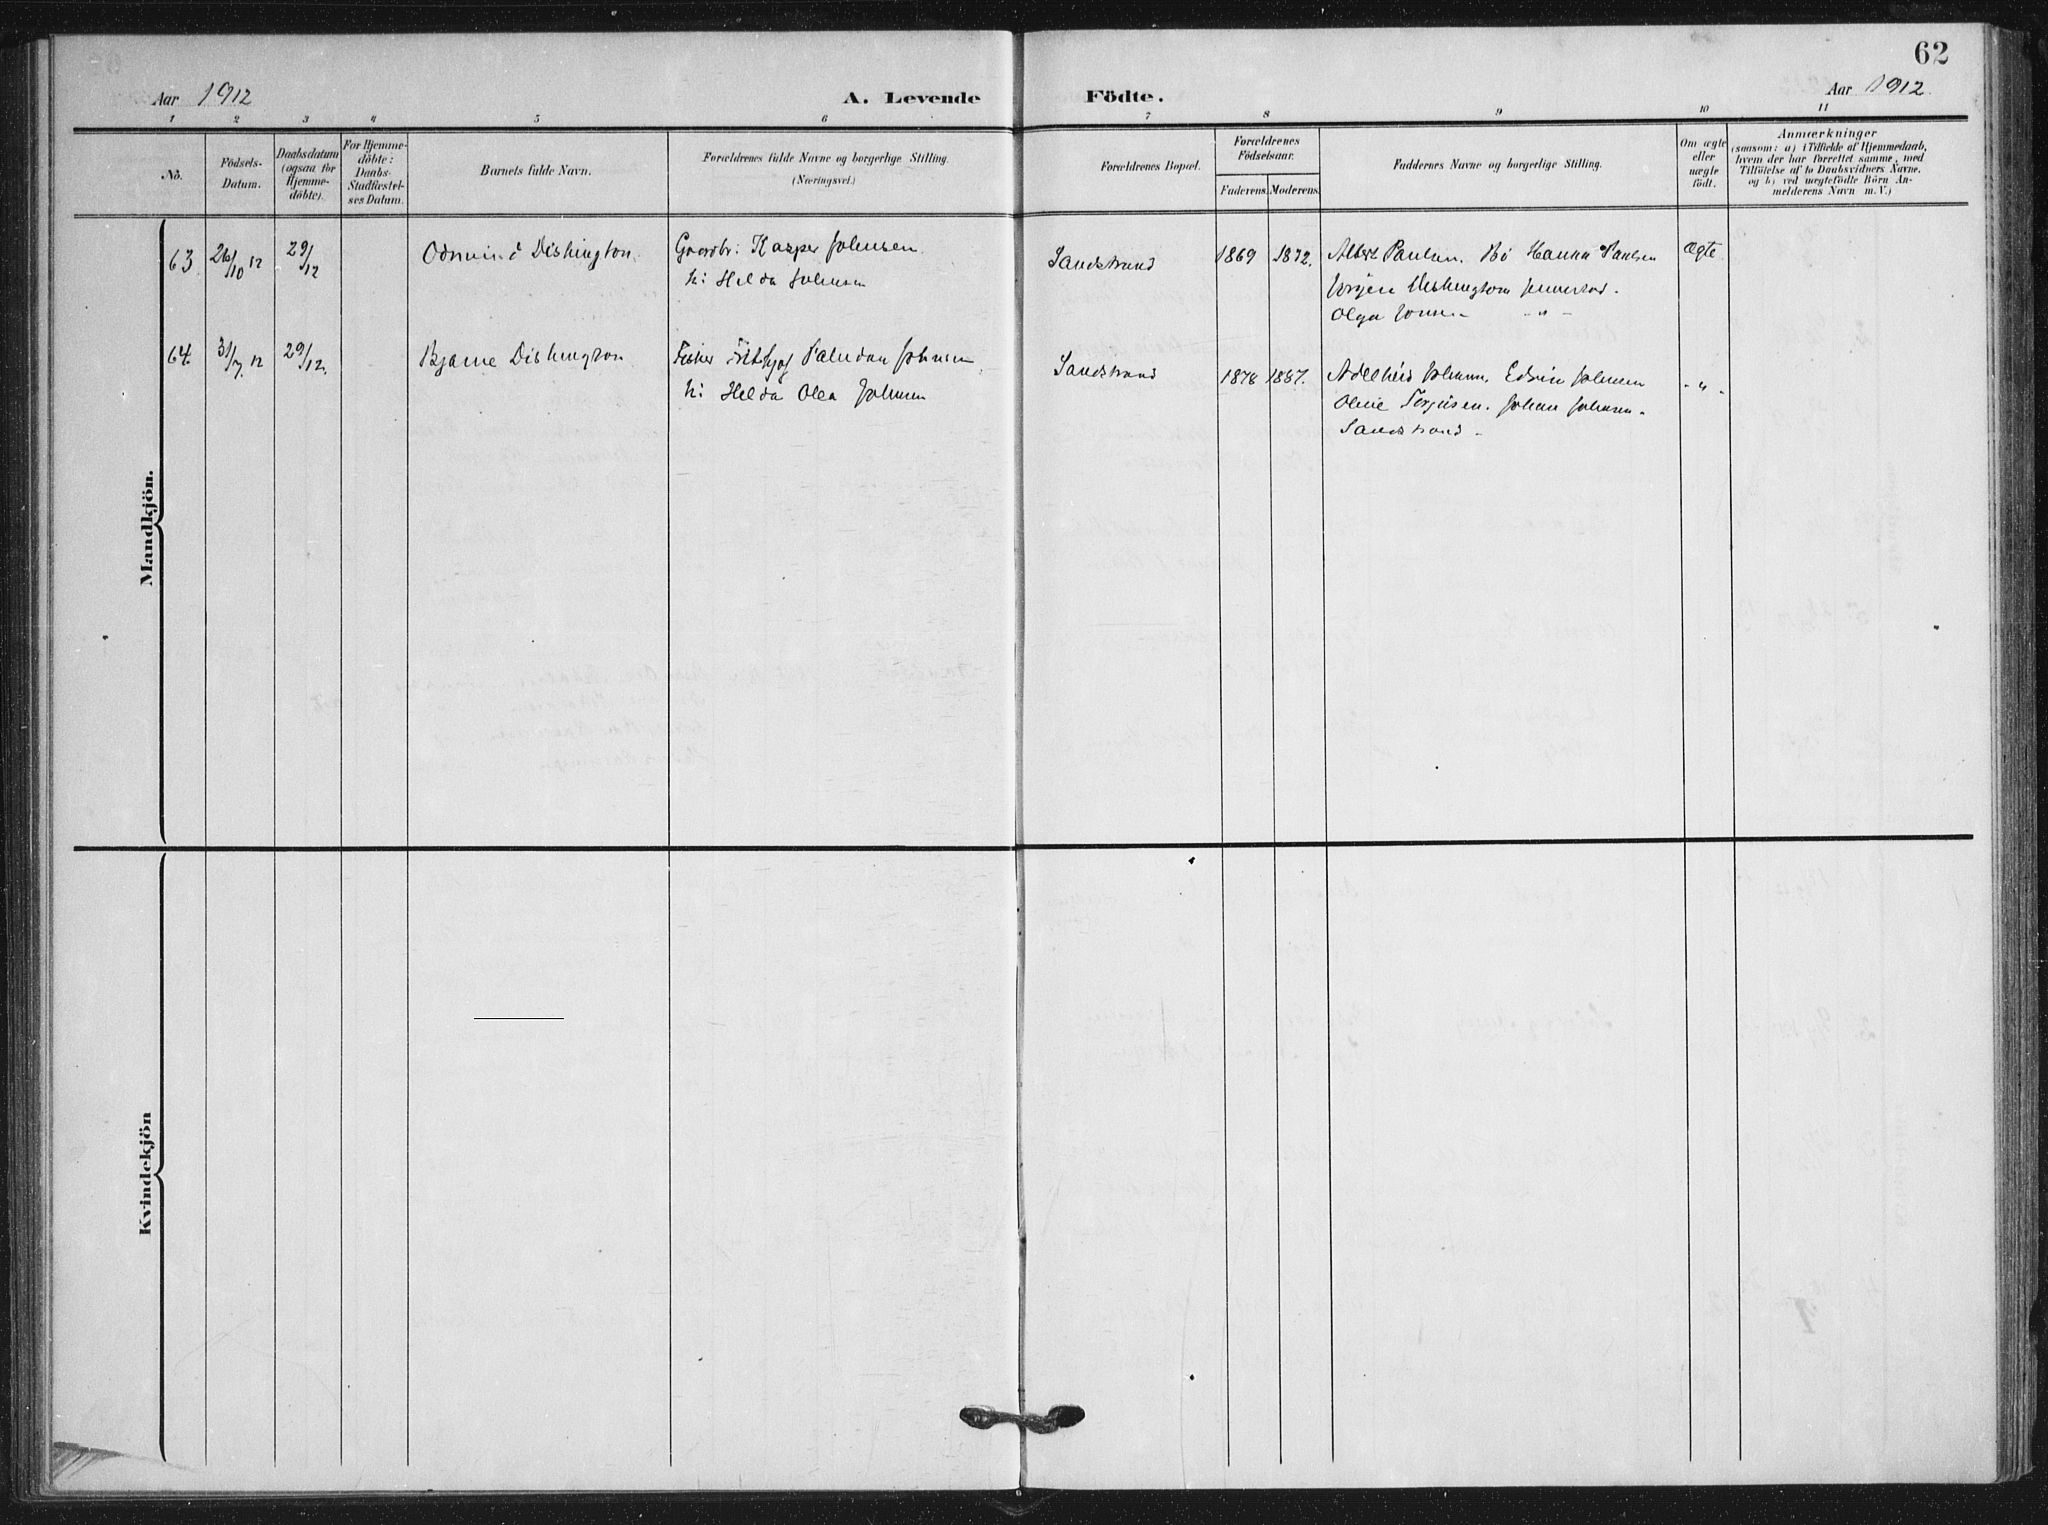 62
Aar 1912
A. Levende
Födte.
Aar 1912.
1 2 3 4 5 6 7 8 9 10 11
No.
Födsels-
Datum.
Daabsdatum
(ogsaa for
Hjemme-
döbte).
For Hjemme-
döbte:
Daabs-
Stadfæstel-
ses Datum.
Barnets fulde Navn.
Forældrenes fulde Navne og borgerlige Stilling.
(Næringsvei.)
Forældrenes Bopæl.
Forældrenes
Födselsaar.
Faderens.
Moderens.
Faddernes Navne og borgerlige Stilling.
Om ægte
eller
uægte
födt.
Anmærkninger
(saasom: a) i Tilfælde af Hjemmedaab,
hvem der har forrettet samme, med
Tilföielse af to Daabsvidners Navne,
og b) ved uægtefödte Börn An-
melderens Navn m. V.)
Mandkjön.
63. 26/10 12 29/12 Odmund Dishington. Gaardbr: Kasper Johnsen
h: Helda Johnsen
Sandstrand 1869 1872. Albert Paulsen. Bö Hanna Paulsen Ægte
Jörgen Dishington
Olga - " -
64. 31/7. 12 29/12. Bjarne Dishington Fisker Fritjof Paludan Johnsen
h: Helda Olea Johnsen
Sandstrand 1878 1887. Adelheid Johnsen. Edvin Johnsen - " -
Oline Torgersen. Johan Johnsen.
Sandstrand -
Kvindekjön